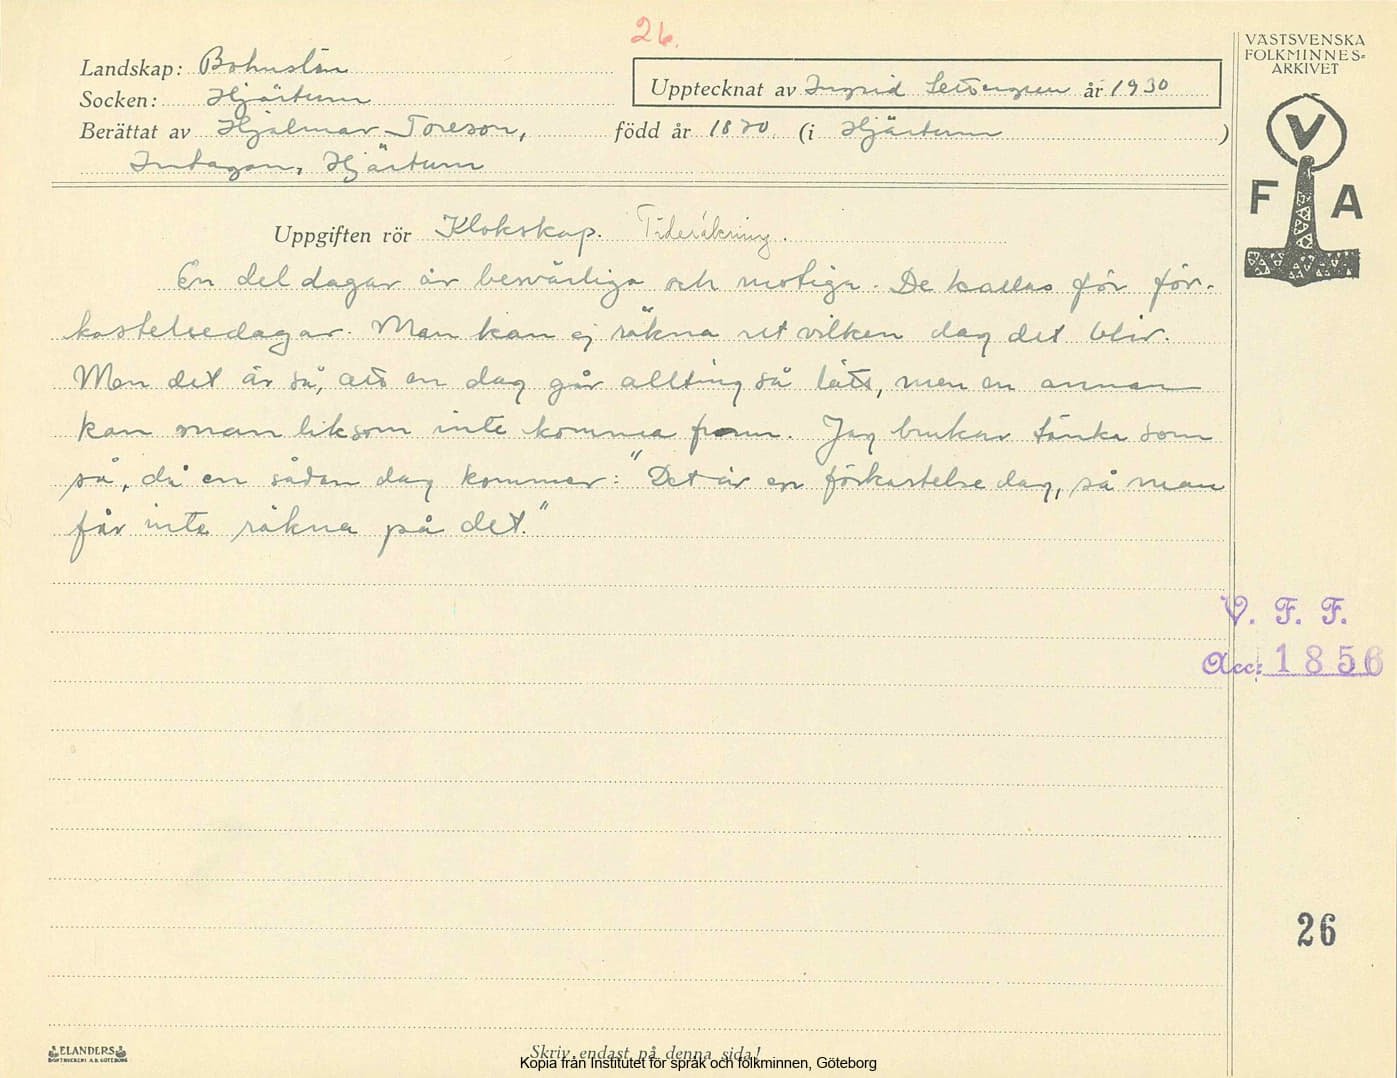 26.
VÄSTSVENSKA
FOLKMINNES-
ARKIVET
V
F A
Landskap: Bohuslän
Socken: Hjärtum
Upptecknat av Ingrid år 1930
Berättat av Hjalmar Toreson, född år 1870 (i Hjärtum )
Intagan, Hjärtum
Uppgiften rör Klokskap. Tideräkning.
En del dagar är besvärliga och motiga. De kallas för för-
kastelsedagar. Man kan ej räkna ut vilken dag det blir.
Men det är så, att en dag går allting så lätt, men en annan
kan man liksom inte komma fram. Jag brukar tänka som
så, då en sådan dag kommer: "Det är en förkastelsedag, så man
får inte räkna på det."
V. F. F.
Acc: 1856
26
ELANDERS
BOKTRYCKERI A.B. GÖTEBORG
Skriv endast på denna sida!
Kopia från Institutet för språk och folkminnen, Göteborg